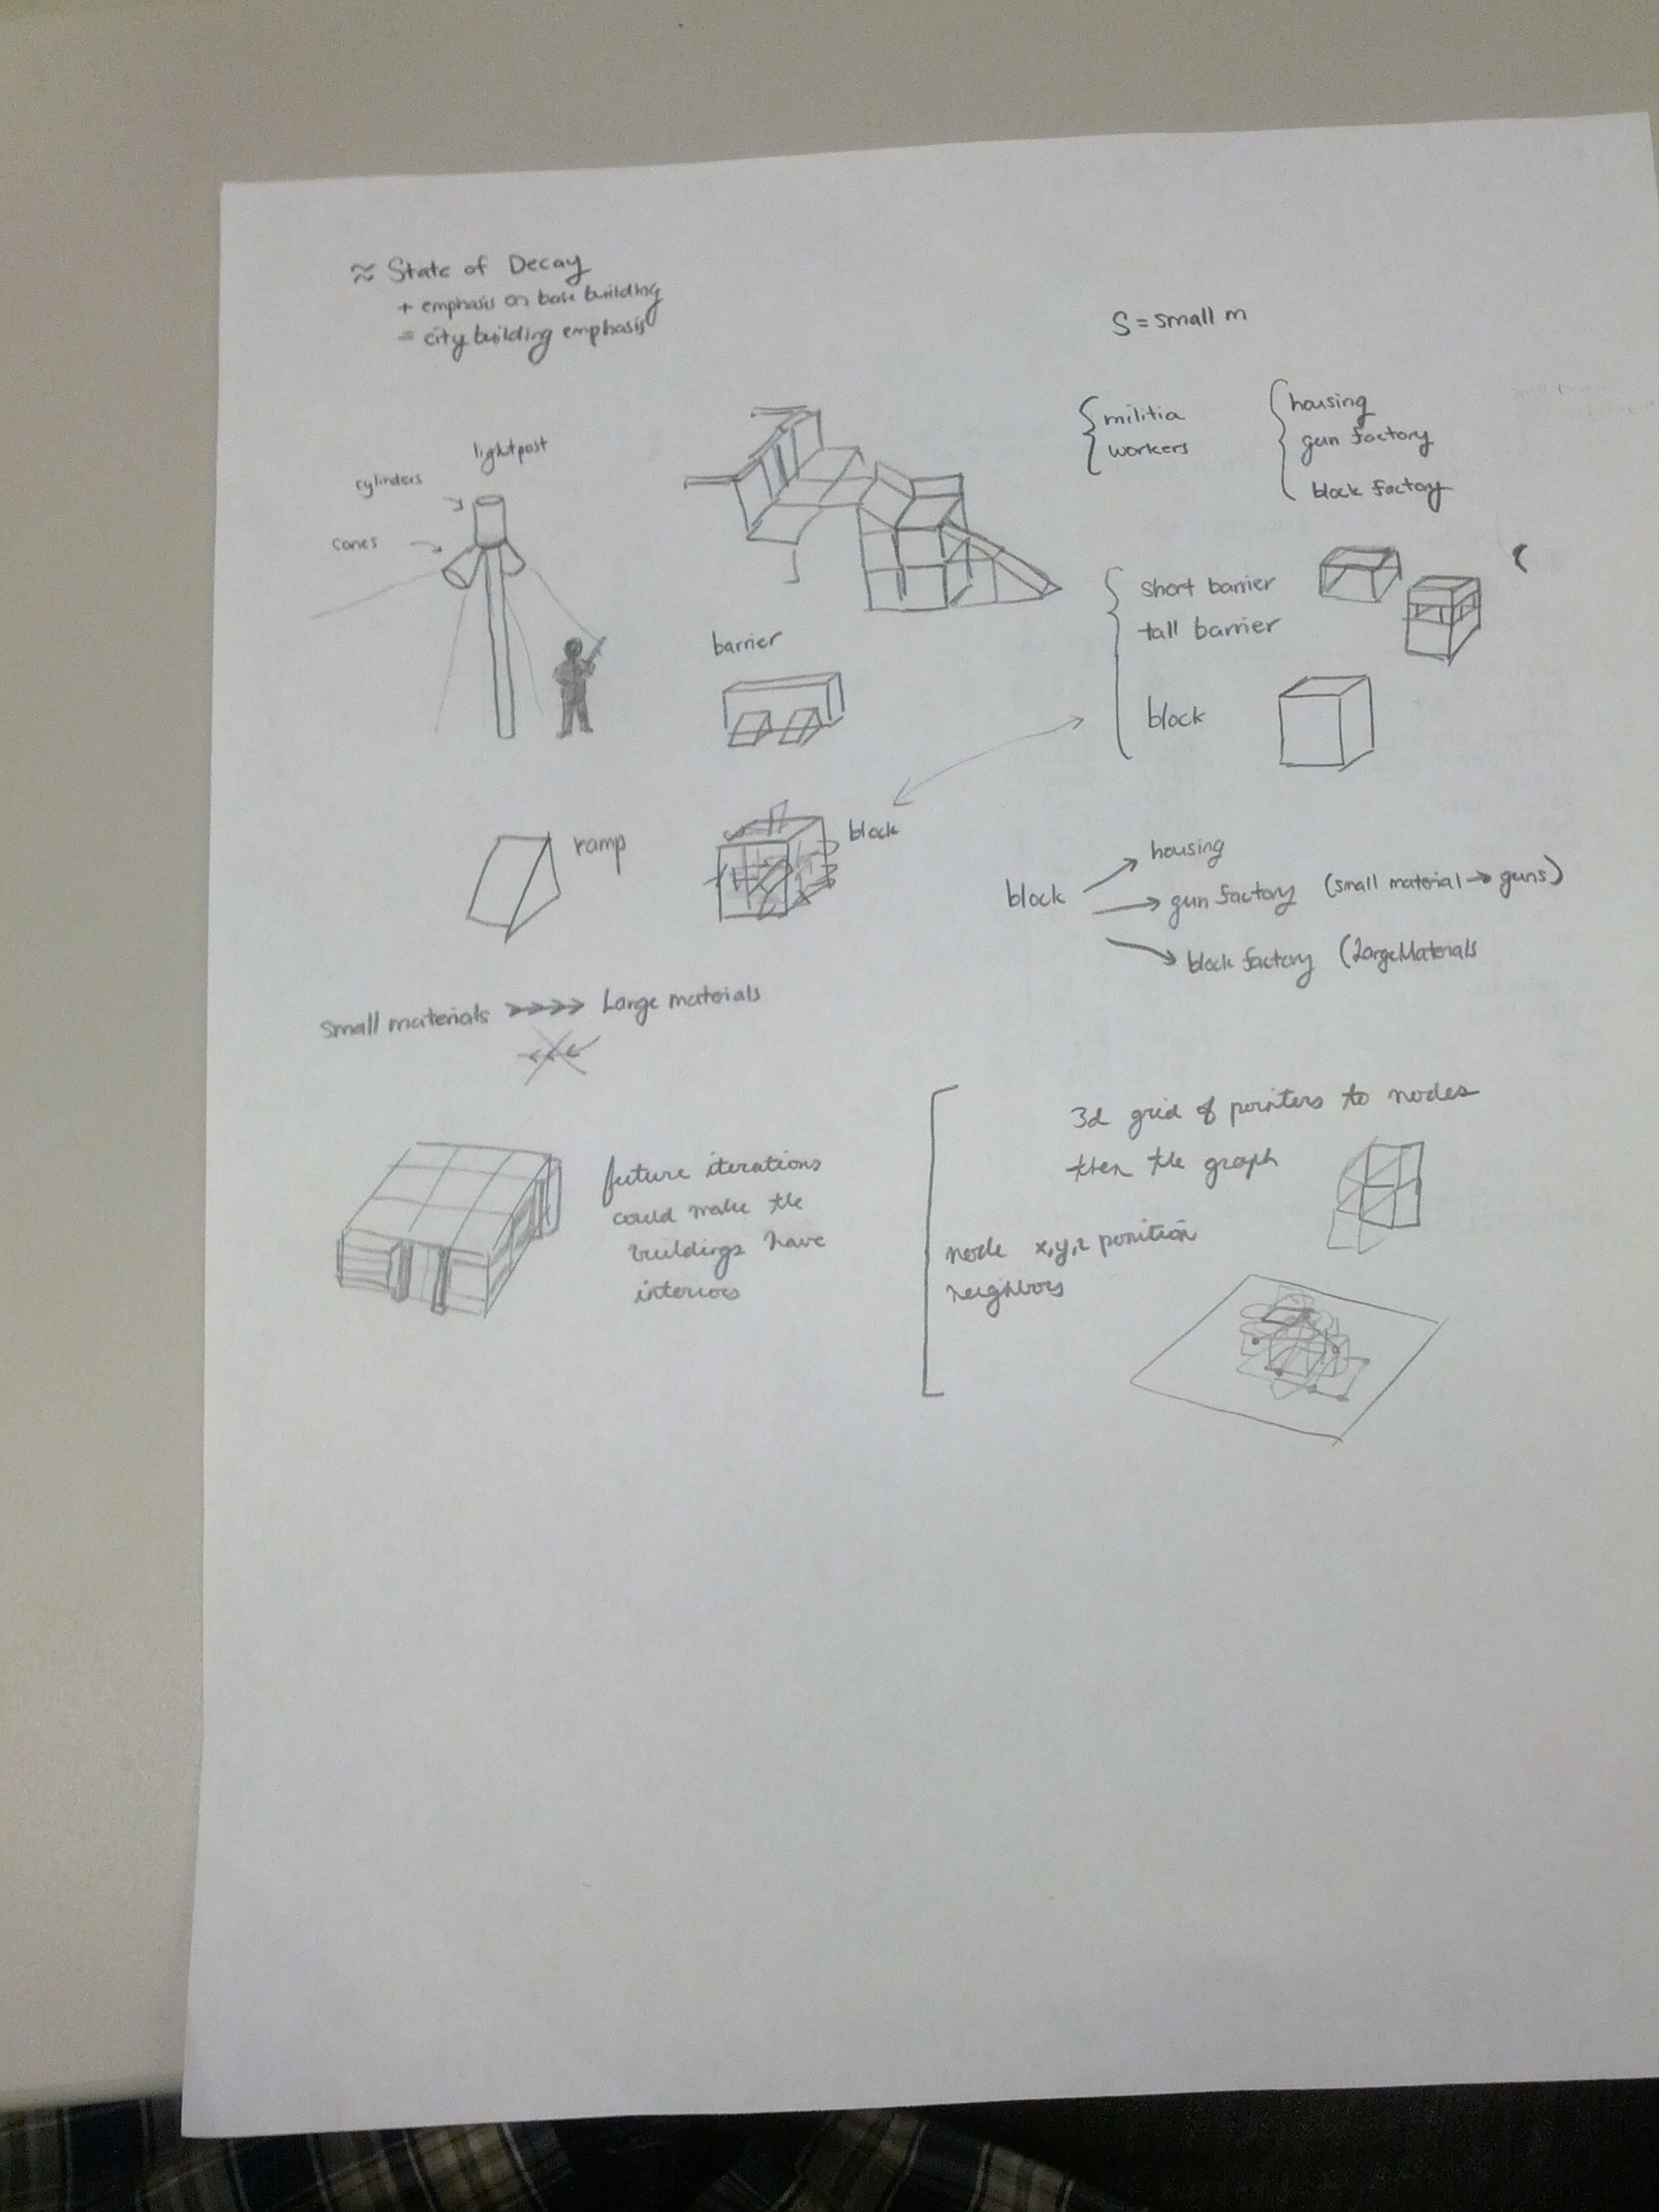 ≈ State of Decay
+ emphasis on base building
= city building emphasis
S = small m
militia
workers
housing
gun factory
block factory
lightpost
cylinders
cones
barrier
short barrier
tall barrier
block
ramp
block
block
housing
gun factory (small material → guns)
block factory (Large Materials
Small materials >>>> Large materials
<<<
future iterations
could make the
buildings have
interiors
3d grid of pointers to nodes
then the graph
node x,y,z position
neighbors